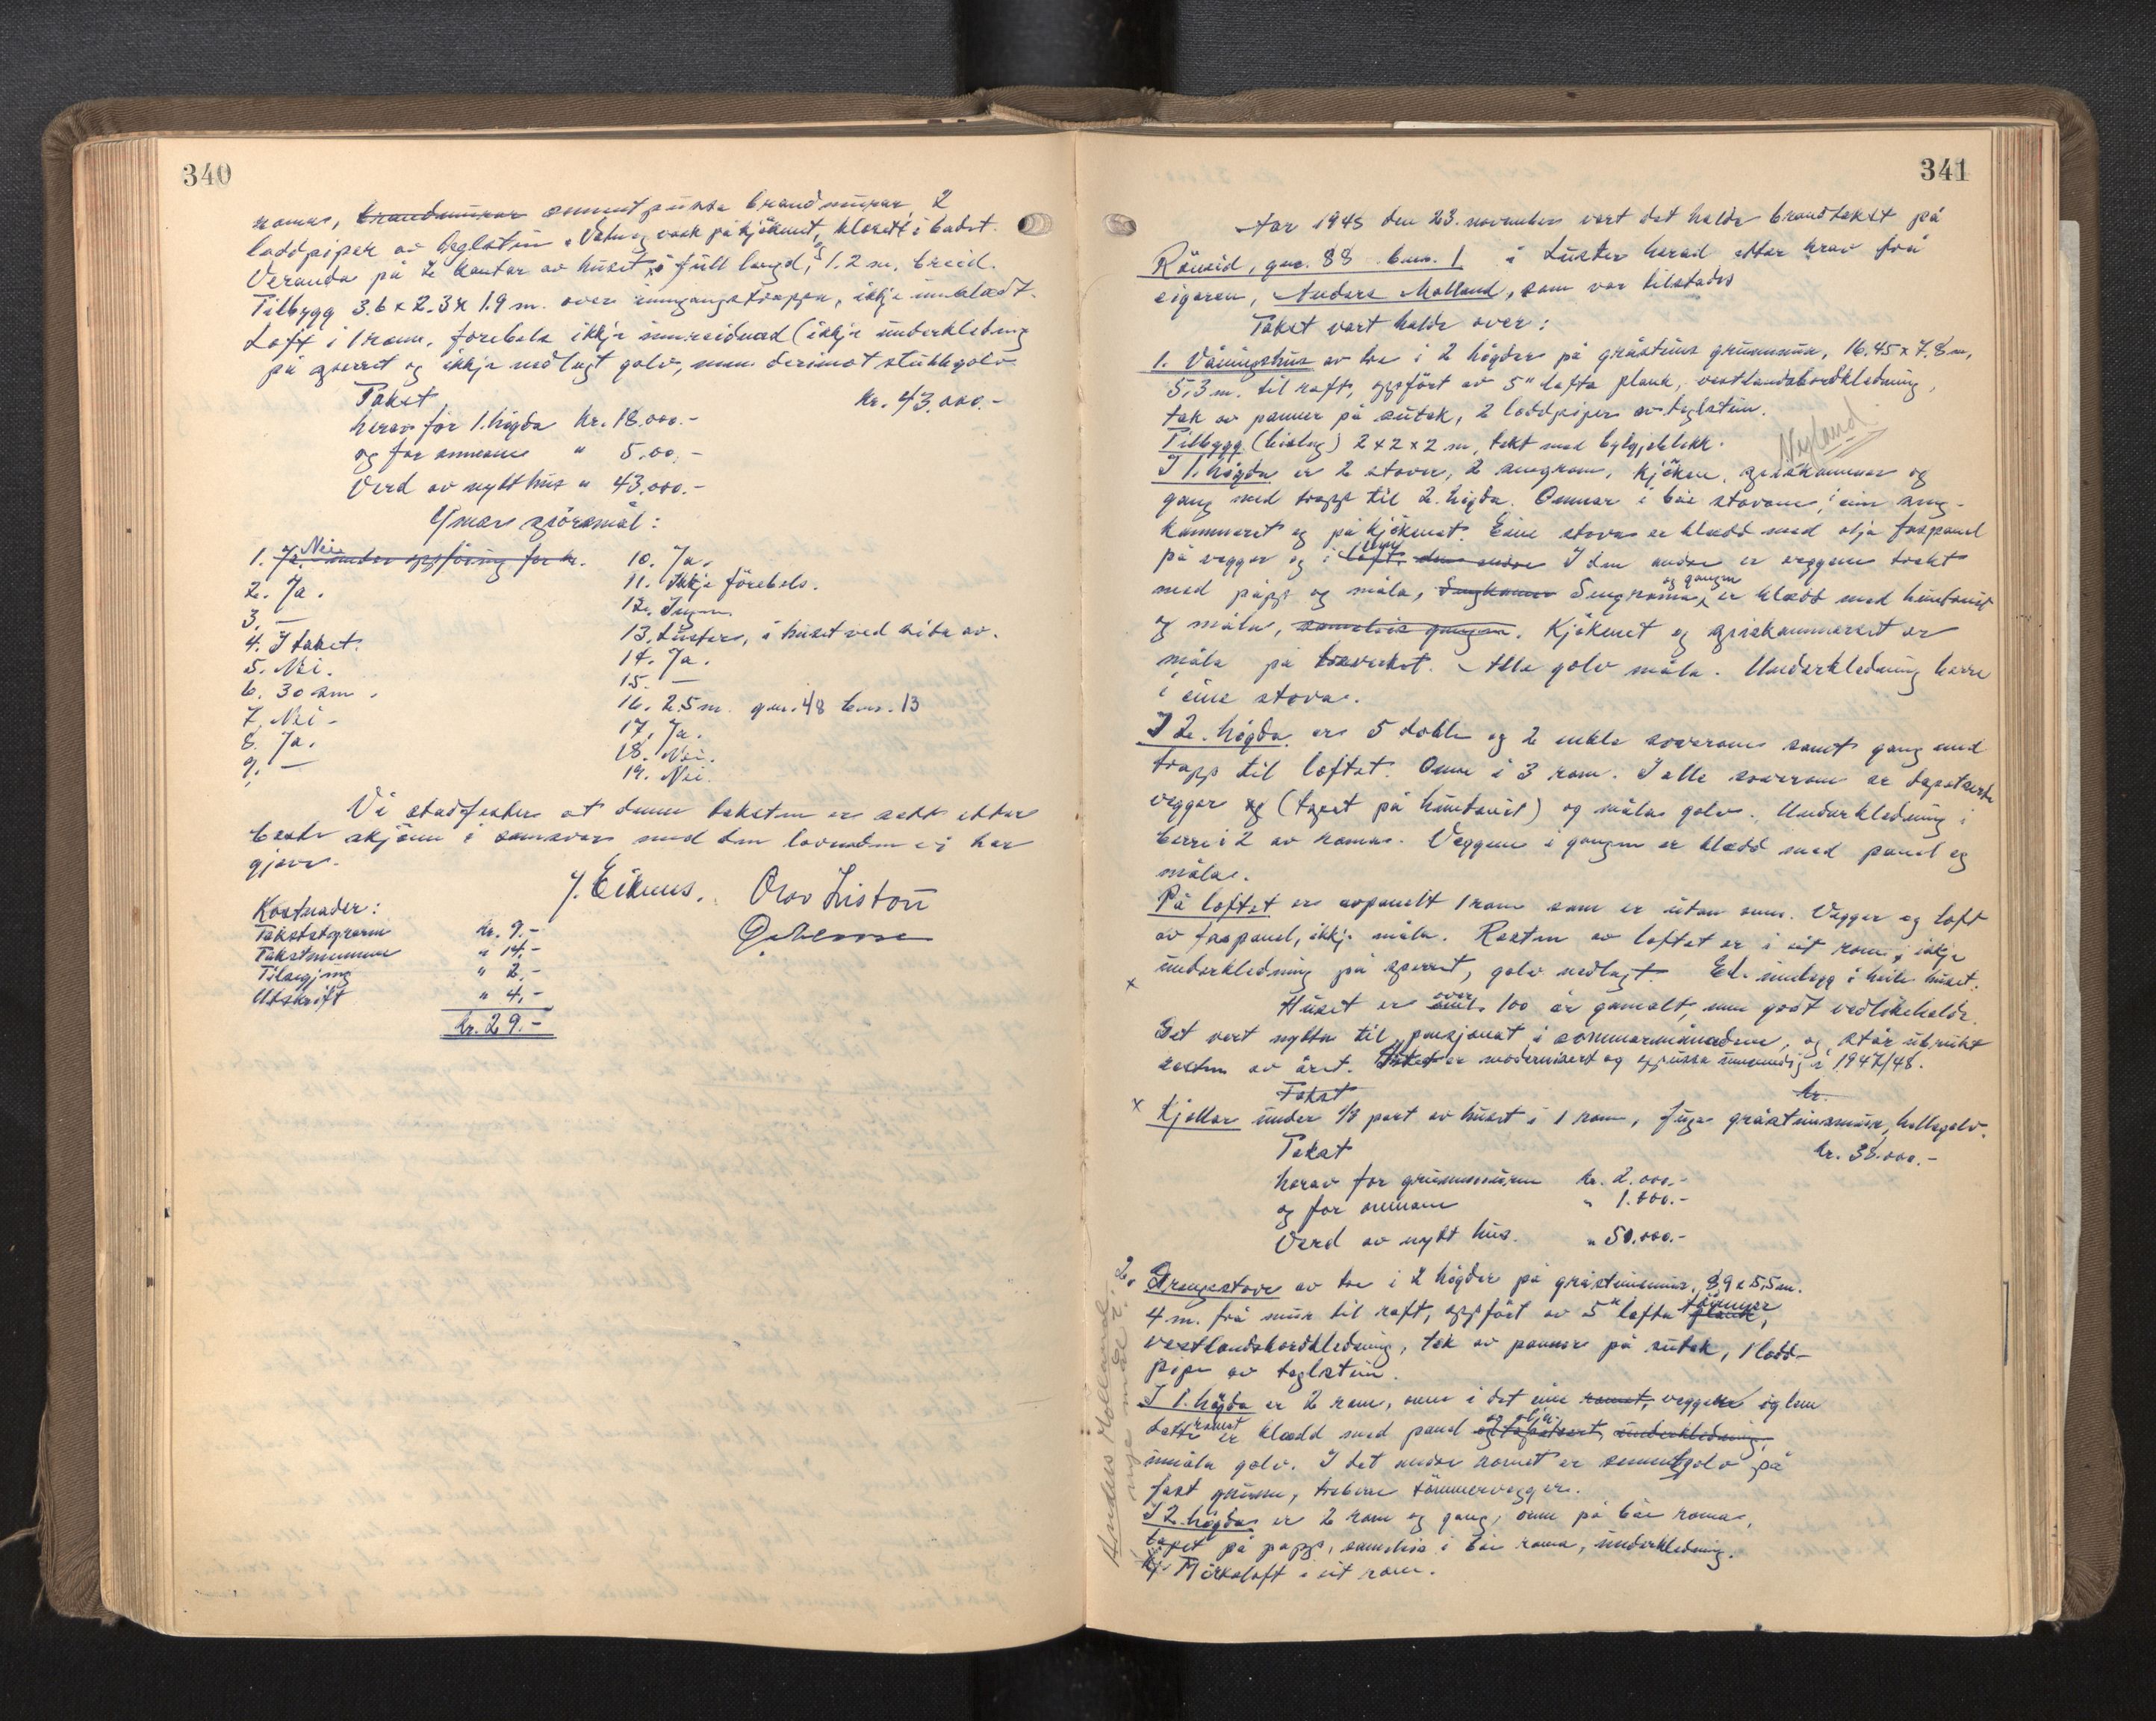 340
romar, brandmurar sementpussa brandmurar, 2
loddpiper av teglstein. Vatn og vask på kjøkenet, klosett i badet.
Veranda på 2 kantar av huset, i full lengd, 1.2 m. breid.
Tilbygg 3.6 x 2.3 x 1.9 m. over inngangstrappa, ikkje innklædt.
Loft i 1 rom, førebels ikkje innreidned (ikkje underkledning
på sperret og ikkje nedlagt golv, men derimot stubbgolv
Takst kr. 43.000.-
herav for 1. høgda kr. 18.000.-
og for omnane " 5.00.-
Verd av nytt hus " 43.000.-
Ymse spörsmål:
1. Ja. under oppføring for br. Nei
2. Ja.
3. —
4. I taket.
5. Nei.
6. 30 sm.
7. Nei.
8. Ja.
9. —
10. Ja.
11. Ikkje förebels.
12. Ingen
13. Lusters, i huset ved sida av.
14. Ja.
15. —
16. 2.5 m. gnr. 48 bnr. 13
17. Ja.
18. Nei.
19. Nei.
Vi stadfester at denne taksten er sett etter
beste skjønn i samsvar med den lovnaden vi har
gjeve.
Kostnader:
Takststyraren kr. 9.-
Takstmennene " 14.-
Tilsegjing " 2.-
Utskrift " 4,-
kr. 29.-
341
Aar 1948 den 23. november vart det halde brandtakst på
Röneid, gnr. 88 bnr. 1 i Luster herad etter krav frå
eigaren, Anders Molland, som var tilstades
Takst vart halde over:
1. Våningshus av tre i 2 högder på gråsteins grunnmur, 16.45 x 7.8 m,
5,3 m. til raft, oppfört av 5" lafta plank, vestlandsbordkledning,
tak av panner på sutak, 2 loddpiper av teglstein.
Nyland
Tilbygg (bislag) 2 x 2 x 2 m, tekt med bylgjeblekk.
I 1. högda er 2 stover, 2 sengrom, kjöken, spiskammer og
gang med trapp til 2. högda. Omnar i båe stovane, i ein seng-
kammeret og på kjökenet. Eine stova er klædd med olja faspanel
på veggar og i loft, den andre I den andre er veggene trekt
med papp og måla, Sengkamer Sengroma og gangen er klædd med huntonit
og måla, sameleis gangen. Kjökenet og spiskammeret er
måla på treverket. Alle golv måla. Underkledning berre
i eine stova.
I 2. högda er 5 doble og 2 enkle soverom samt gang med
trapp til loftet. Omn i 3 rom. I alle soverom er tapetserte
veggar og (tapet på huntonit) og måla golv. Underkledning i
berre i 2 av romma. Veggene i gangen er klædd med panel og
måla.
På loftet er avpanelt 1 rom som er utan omn. Vegger og loft
av faspanel, ikkje måla. Resten av loftet er i eit rom, ikkje
underkledning på sperret, golv nedlagt. El. innlegg i heile huset.
x Huset er over 100 år gamalt, men godt vedlikehalde.
Det vert nytta til pensjonat i sommarmånadene, og står ubrukt
resten av året. Huset er modernisert og oppussa innvendig i 1947/48.
Takst kr.
x Kjellar under 1/8 part av huset i 1 rom, fuga gråsteinsmur, hellegolv.
Takst kr. 38.000.-
herav for grunnmuren kr. 2.000.-
og for omnane " 1.000.-
Verd av nytt hus. " 50.000.-
2. Drengestove av tre i 2 högder på gråsteinsmur, 8,9 x 5,5 m.
4 m. frå mur til raft, oppfört av 5" lafta plank tömmer,
vestlandsbordkledning, tak av panner på sutak, 1 lodd-
pipe av teglstein.
I 1. högda er 2 rom, omn i det eine romet, veggene og lem
dette romet er klædd med panel og tapetsert, og olja. underkledning,
umåla golv. I det andre romet er sementgolv på
fast grunn, treberre tömmervegger.
I 2. högda er 2 rom og gang, omn på båe roma,
tapet på papp, sameleis i båe roma, underkledning.
Mörkeloft i eit rom.
Anders Molland.